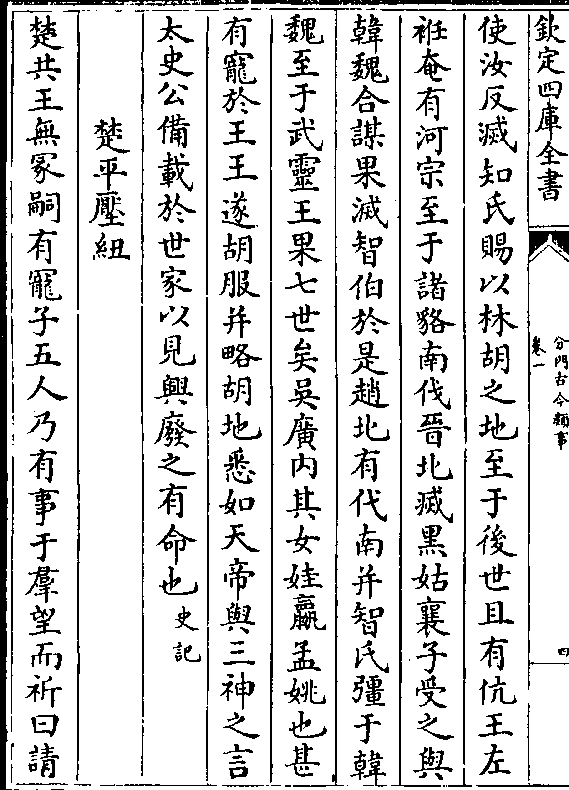 欽定四庫全書
分門古今類事
卷一
四
使汝反滅知氏賜以林胡之地至于後世且有伉王左
袵奄有河宗至于諸貉南伐晉北滅黑姑襄子受之與
韓魏合謀果滅智伯於是趙北有代南并智氏彊于韓
魏至于武靈王果七世矣吳廣内其女娃嬴孟姚也甚
有寵於王王遂胡服并略胡地悉如天帝與三神之言
太史公備載於世家以見興廢之有命也史記
楚平壓紐
楚共王無冢嗣有寵子五人乃有事于羣望而祈曰請